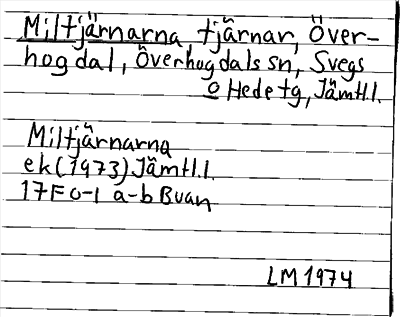 Miltjärnarna, tjärnar, Över-
hogdal, Överhogdals sn, Svegs
o Hede tg, Jämtl.l.
Miltjärnarna
ek (1973) Jämtl.l.
17F 0-1 a-b Buan
LM 1974